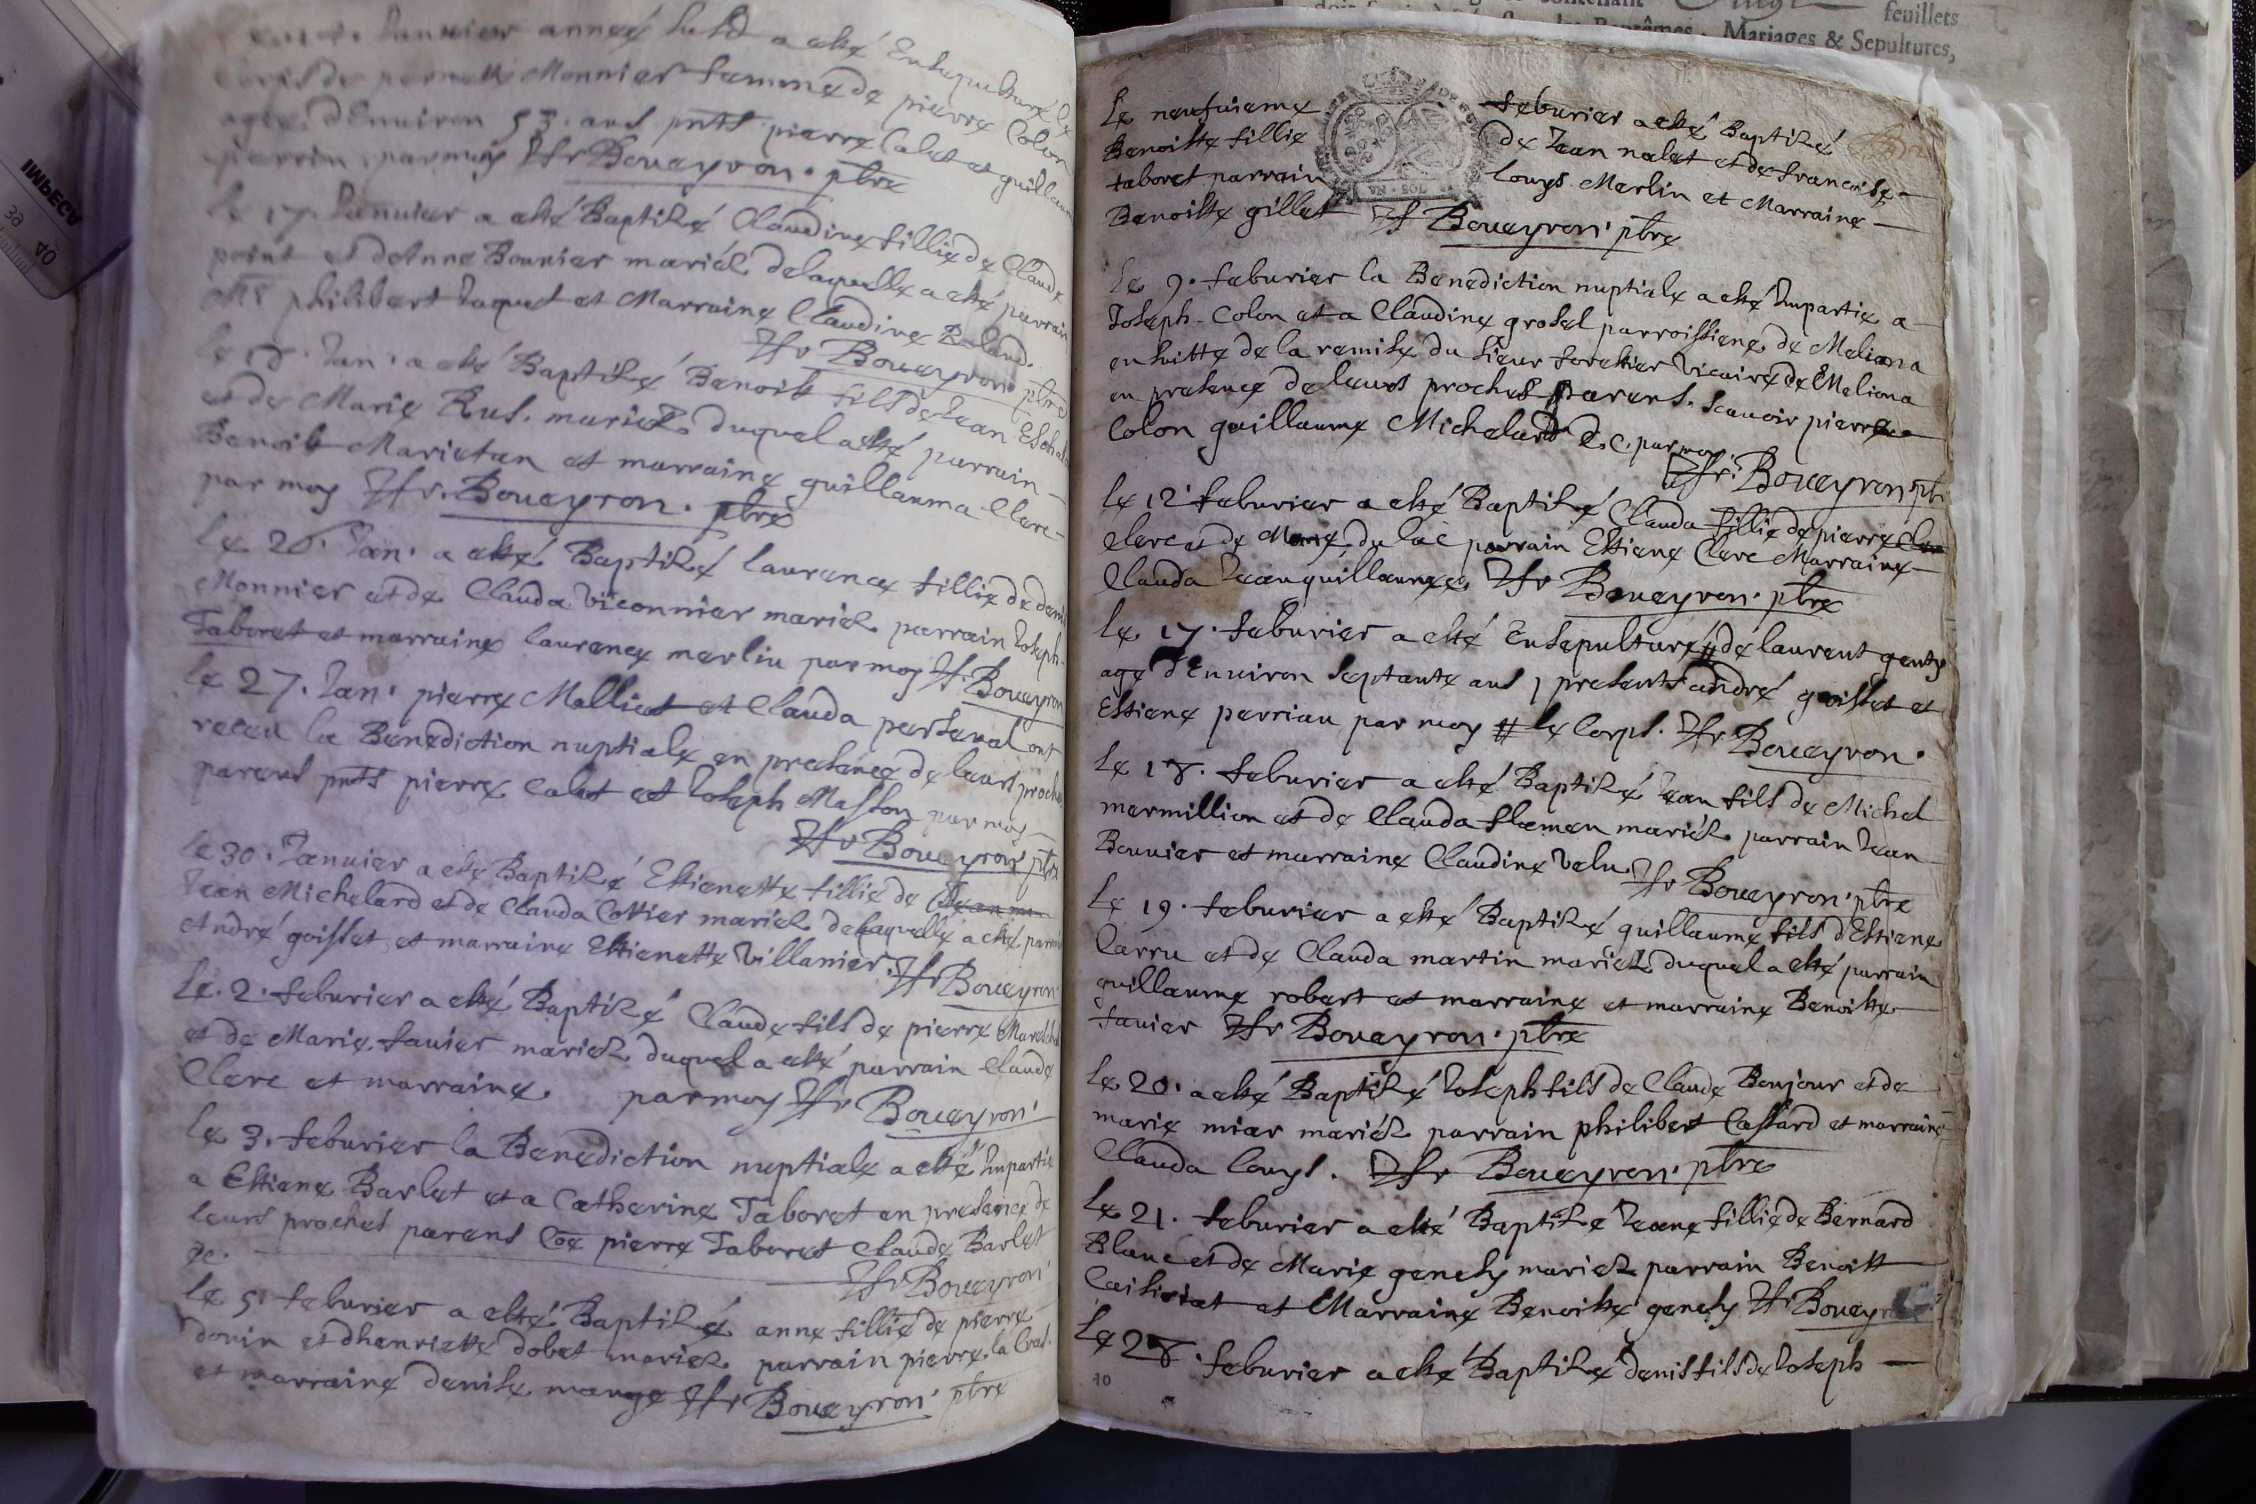 Januier année susd a esté Ensepulturé le
Corps de pernette Monnier femme de pierre Colon
agée d'Enuiron 53. ans pnts pierre Calet et guillaume
perrin par moy Hr Boueyron. ptre
le 17. Januier a esté Baptisé Claudine fillie de Claude
point et de Anne Bonnier mariés delaquelle a esté parrain
Mr philibert Jaquet et Marraine Claudine Roland.
Hr Boueyron. ptre
le 18. Jan. a esté Baptisé Benoit fils de Jean
et de Marie Rus. mariés duquel a esté parrain
Benoit Marietan et marraine guillauma Clerc
par moy Hr. Boueyron. ptre
le 26. Jan. a esté Baptisé laurence fillie de denis
Monnier et de Clauda viconnier mariés parrain Joseph
Taboret et marraine laurence merlin par moy Hr. Boueyron
le 27. Jan. pierre Malliet et Clauda perseual ont
receu la Benediction nuptiale en presence de leurs proches
parens pnts pierre Calet et Joseph Masson par moy
Hr Boueyron ptre
le 30. Januier a esté Baptisé Estienette fillie de
Jean Michelard et de Clauda Cottier mariés delaquelle a esté parrain
André goisset et marraine Estienette Villanier. Hr Boueyron
Le. 2. feburier a esté Baptisé Claude fils de pierre
et de Marie fauier mariés duquel a esté parrain Claude
Clerc et marraine. par moy Hr Boueyron.
le 3. feburier la Benediction nuptiale a esté Impartie
a Estiene Barlet et a Catherine Taboret en presence de
leurs proches parens Coe pierre Taboret Claude Barlet
&c.
Hr Boueyron.
le 5. feburier a esté Baptisé anne fillie de pierre
donin et dhenriette dobet mariés parrain pierre la
et marraine denise mange Hr Boueyron. ptre
feuillets
Mariages & Sepultures,
Le neufuieme feburier a esté Baptisé
Benoitte fillie de Jean nalet et de francoise
taboret parrain louys Merlin et Marraine
Benoitte gillet Hr Boueyron. ptre
VN · SOL
le 9. feburier la Benediction nuptiale a esté Impartie a
Joseph Colon et a Claudine grosel parroissiene de Meliona
en suitte de la remise du sieur forestier Vicaire de Meliona
en presence de leurs proches parens. scauoir pierre
Colon guillaume Michelard &c. par moy.
Hr. Boueyron. pt
le 12 feburier a esté Baptisé Clauda fillie de pierre
Clerc et de Marie du lac parrain Estiene Clerc Marraine
Clauda Jeanguillaumee Hr Boueyron. ptre
le 17. feburier a esté Ensepulturé # de laurent genty
agé d'Enuiron septante ans presents andré goisset et
Estiene perriau par moy # le Corps. Hr Boueyron.
le 18. feburier a esté Baptisé Jean fils de Michel
mermillion et de Clauda flamen mariés parrain Jean
Bouuier et marraine Claudine Velu Hr Boueyron. ptre
le 19. feburier a esté Baptisé guillaume fils d'Estiene
Carru et de Clauda martin mariés duquel a esté parrain
guillaume robert et marraine et marraine Benoitte
fauier Hr Boueyron. ptre
le 20. a esté Baptisé Joseph fils de Claude Bonjour et de
marie miar mariés parrain philibert Cassard et marraine
Clauda louys. Hr Boueyron. ptre
le 21. feburier a esté Baptisé Jeane fillie de Bernard
Blanc et de Marie genety mariés parrain Benoitt
et Marraine Benoitte genety Hr Bouey
le 28. feburier a esté Baptisé denis fils de Joseph
10